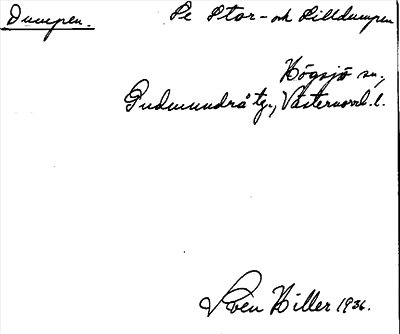 Dumpen. Se Stor- och Lilldumpen
Högsjö sn,
Gudmundrå tg., Västernorrl. l.
Sven Hiller 1936.